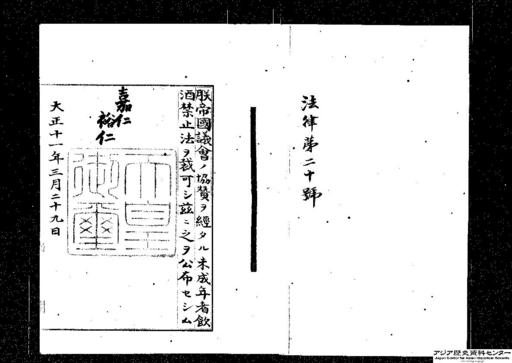 法律第二十號
朕帝國議會ノ協賛ヲ經タル未成年者飲
酒禁止法ヲ裁可シ茲ニ之ヲ公布セシム
嘉仁
裕仁
天皇
御璽
大正十一年三月二十九日
アジア歴史資料センター
Japan Center for Asian Historical Records